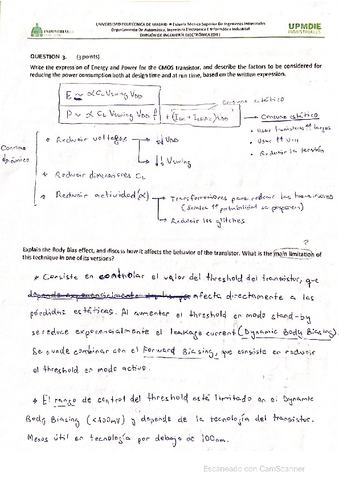 UNIVERSIDAD POLITÉCNICA DE MADRID • Escuela Técnica Superior De Ingenieros Industriales
Departamento De Automática, Ingeniería Electrónica E Informática Industrial
DIVISIÓN DE INGENIERÍA ELECTRÓNICA (DIE)
UPMDIE
INDUSTRIALES
QUESTION 3. (3 points)
Write the expression of Energy and Power for the CMOS transistor, and describe the factors to be considered for
reducing the power consumption both at design time and at run time, based on the written expression.
E ~ α CL Vswing VDD
P ~ α CL Vswing VDD f + (IDC + ILeak) VDD
Consumo estático
→ Consumo estático
• Usar transistores largos
• Usar ↑↑ VTH
• Reducir la tensión
Consumo dinámico
• Reducir voltajes → ↓↓ VDD
→ ↓↓ Vswing
• Reducir dimensiones CL
• Reducir actividad (α) → Transformaciones para reducir las transiciones
→ Reducir los glitches
?
Explain the Body Bias effect, and discuss how it affects the behavior of the transistor. What is the main limitation of
this technique in one of its versions?
* Consiste en controlar el valor del threshold del transistor, que
afecta directamente a las
pérdidas estáticas. Al aumentar el threshold en modo stand-by
se reduce exponencialmente el leakage current (Dynamic Body Biasing).
Se puede combinar con el Forward Biasing, que consiste en reducir
el threshold en modo activo.
* El rango de control del threshold está limitado en el Dynamic
Body Biasing (<400mV) y depende de la tecnología del transistor.
Menos útil en tecnología por debajo de 100nm.
Escaneado con CamScanner